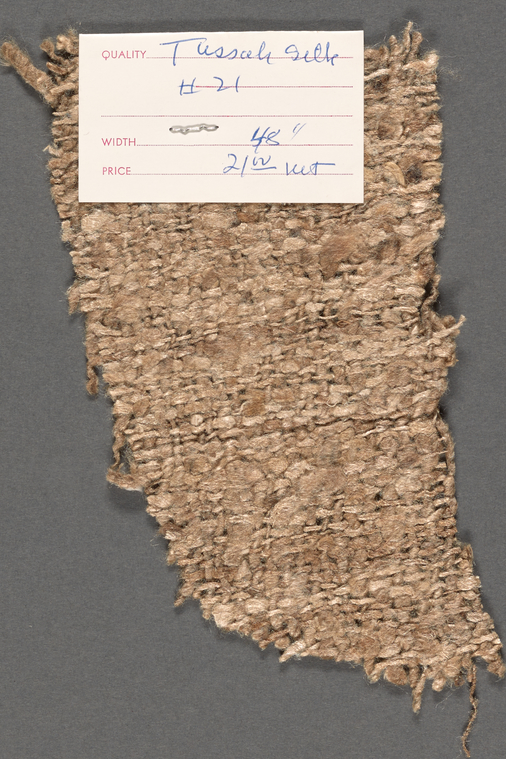 QUALITY Tussah Silk
# 21
WIDTH 48"
PRICE 21.00 net